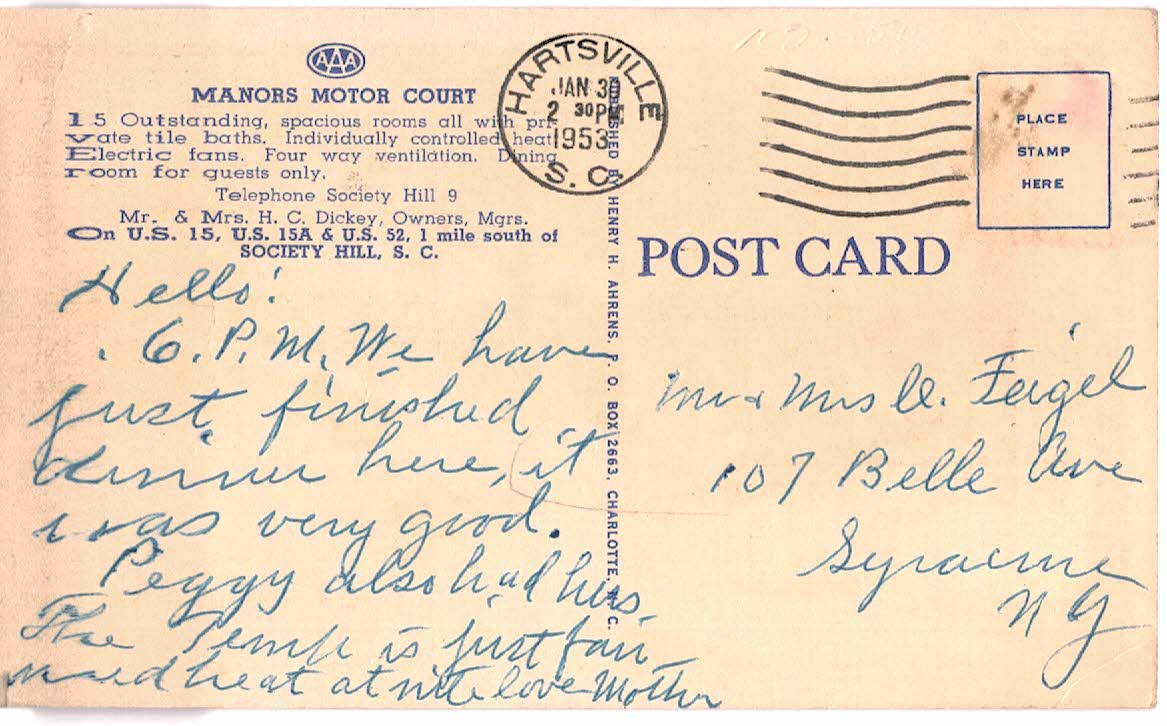 AAA
MANORS MOTOR COURT
15 Outstanding, spacious rooms all with pri-
vate tile baths. Individually controlled heat.
Electric fans. Four way ventilation. Dining
room for guests only.
Telephone Society Hill 9
Mr. & Mrs. H. C. Dickey, Owners, Mgrs.
On U.S. 15, U.S. 15A & U.S. 52, 1 mile south of
SOCIETY HILL, S. C.
Hello!
6. P. M. We have
just finished
dinner here, it
was very good.
Peggy also had hers.
The Temp is just fair
need heat at nite love Mother
PUBLISHED BY HENRY H. AHRENS, P. O. BOX 2663, CHARLOTTE, N. C.
HARTSVILLE
JAN 30
2 30 PM
1953
S. C.
PLACE
STAMP
HERE
POST CARD
Mr & Mrs C. Feigel
107 Belle Ave
Syracuse
N Y